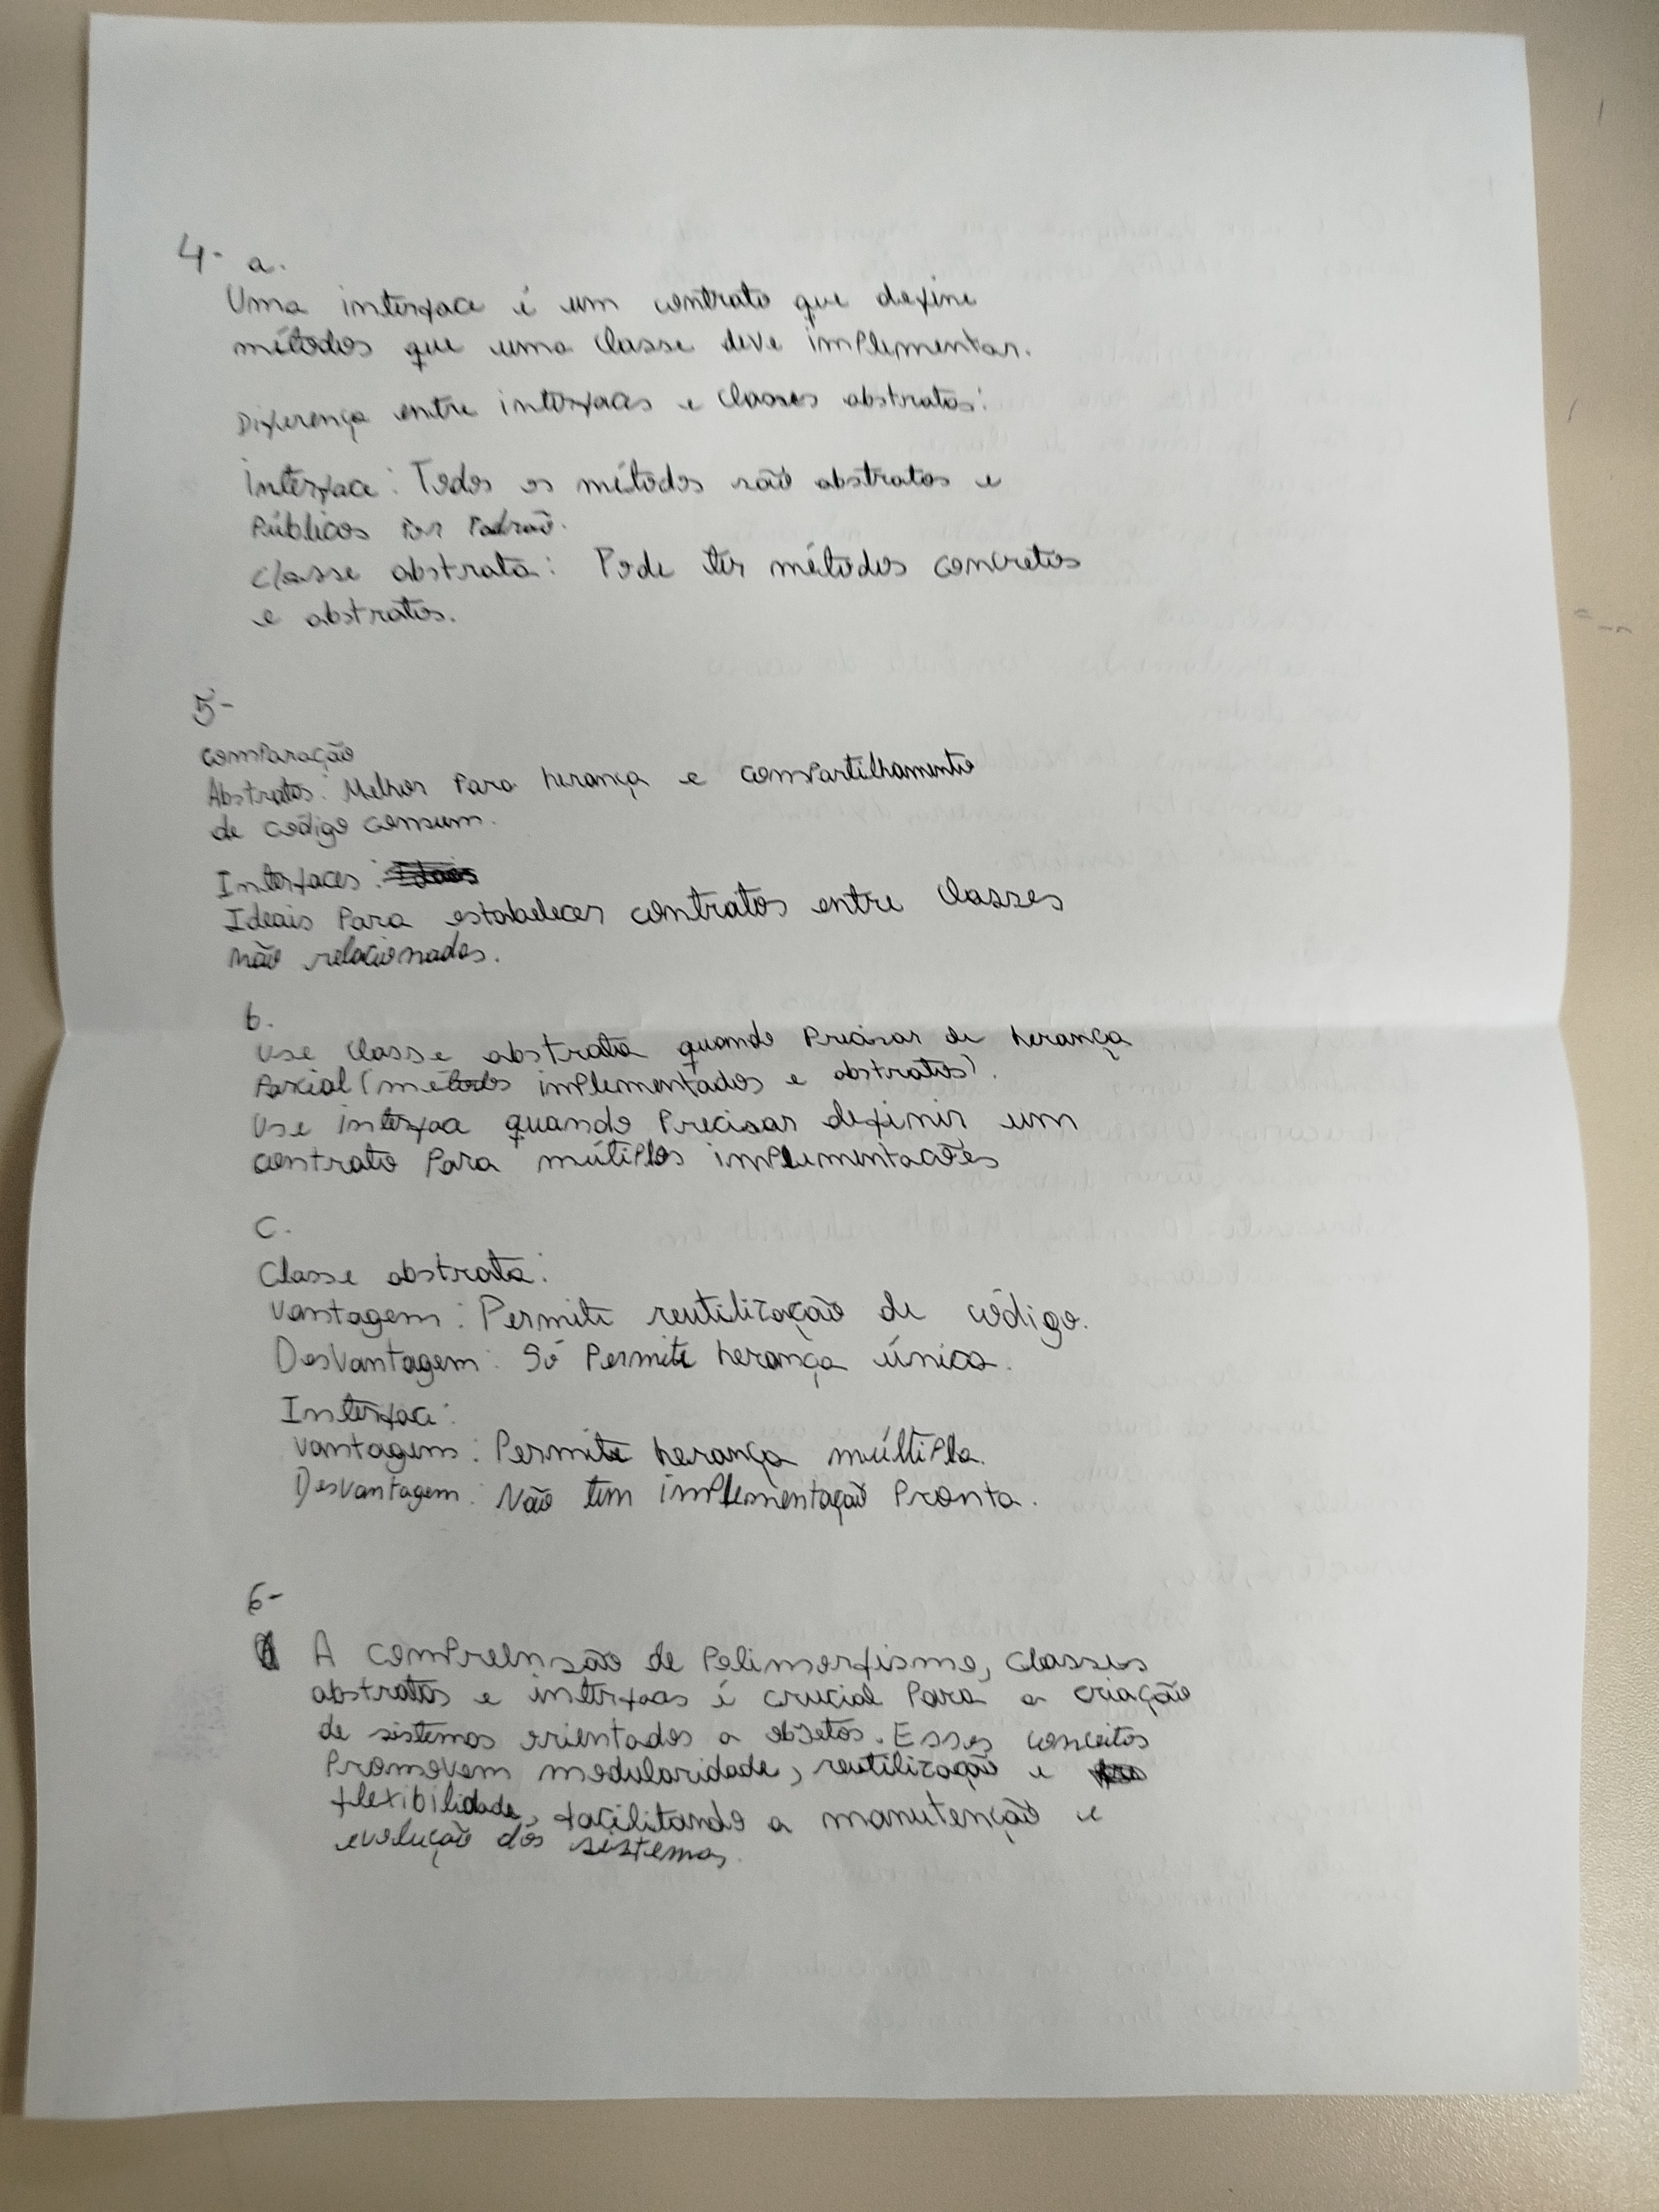 4- a.
Uma interface é um contrato que define
métodos que uma classe deve implementar.
Diferença entre interfaces e classes abstratas:
Interface: Todos os métodos são abstratos e
Públicos por Padrão.
Classe abstrata: Pode ter métodos concretos
e abstratos.
5-
comparação
Abstratas: Melhor Para herança e compartilhamento
de código comum.
Interfaces:
Ideais Para estabelecer contratos entre classes
não relacionadas.
b.
Use classe abstrata quando Precisar de herança
Parcial (métodos implementados e abstratos).
Use interface quando Precisar definir um
contrato Para múltiplas implementações
C.
Classe abstrata:
Vantagem: Permite reutilização de código.
Desvantagem: Só Permite herança única.
Interface:
Vantagem: Permite herança múltipla.
Desvantagem: Não tem implementação Pronta.
6-
A compreensão de Polimorfismo, classes
abstratas e interfaces é crucial Para a criação
de sistemas orientados a objetos. Esses conceitos
Promovem modularidade, reutilização e
flexibilidade, facilitando a manutenção e
evolução dos sistemas.